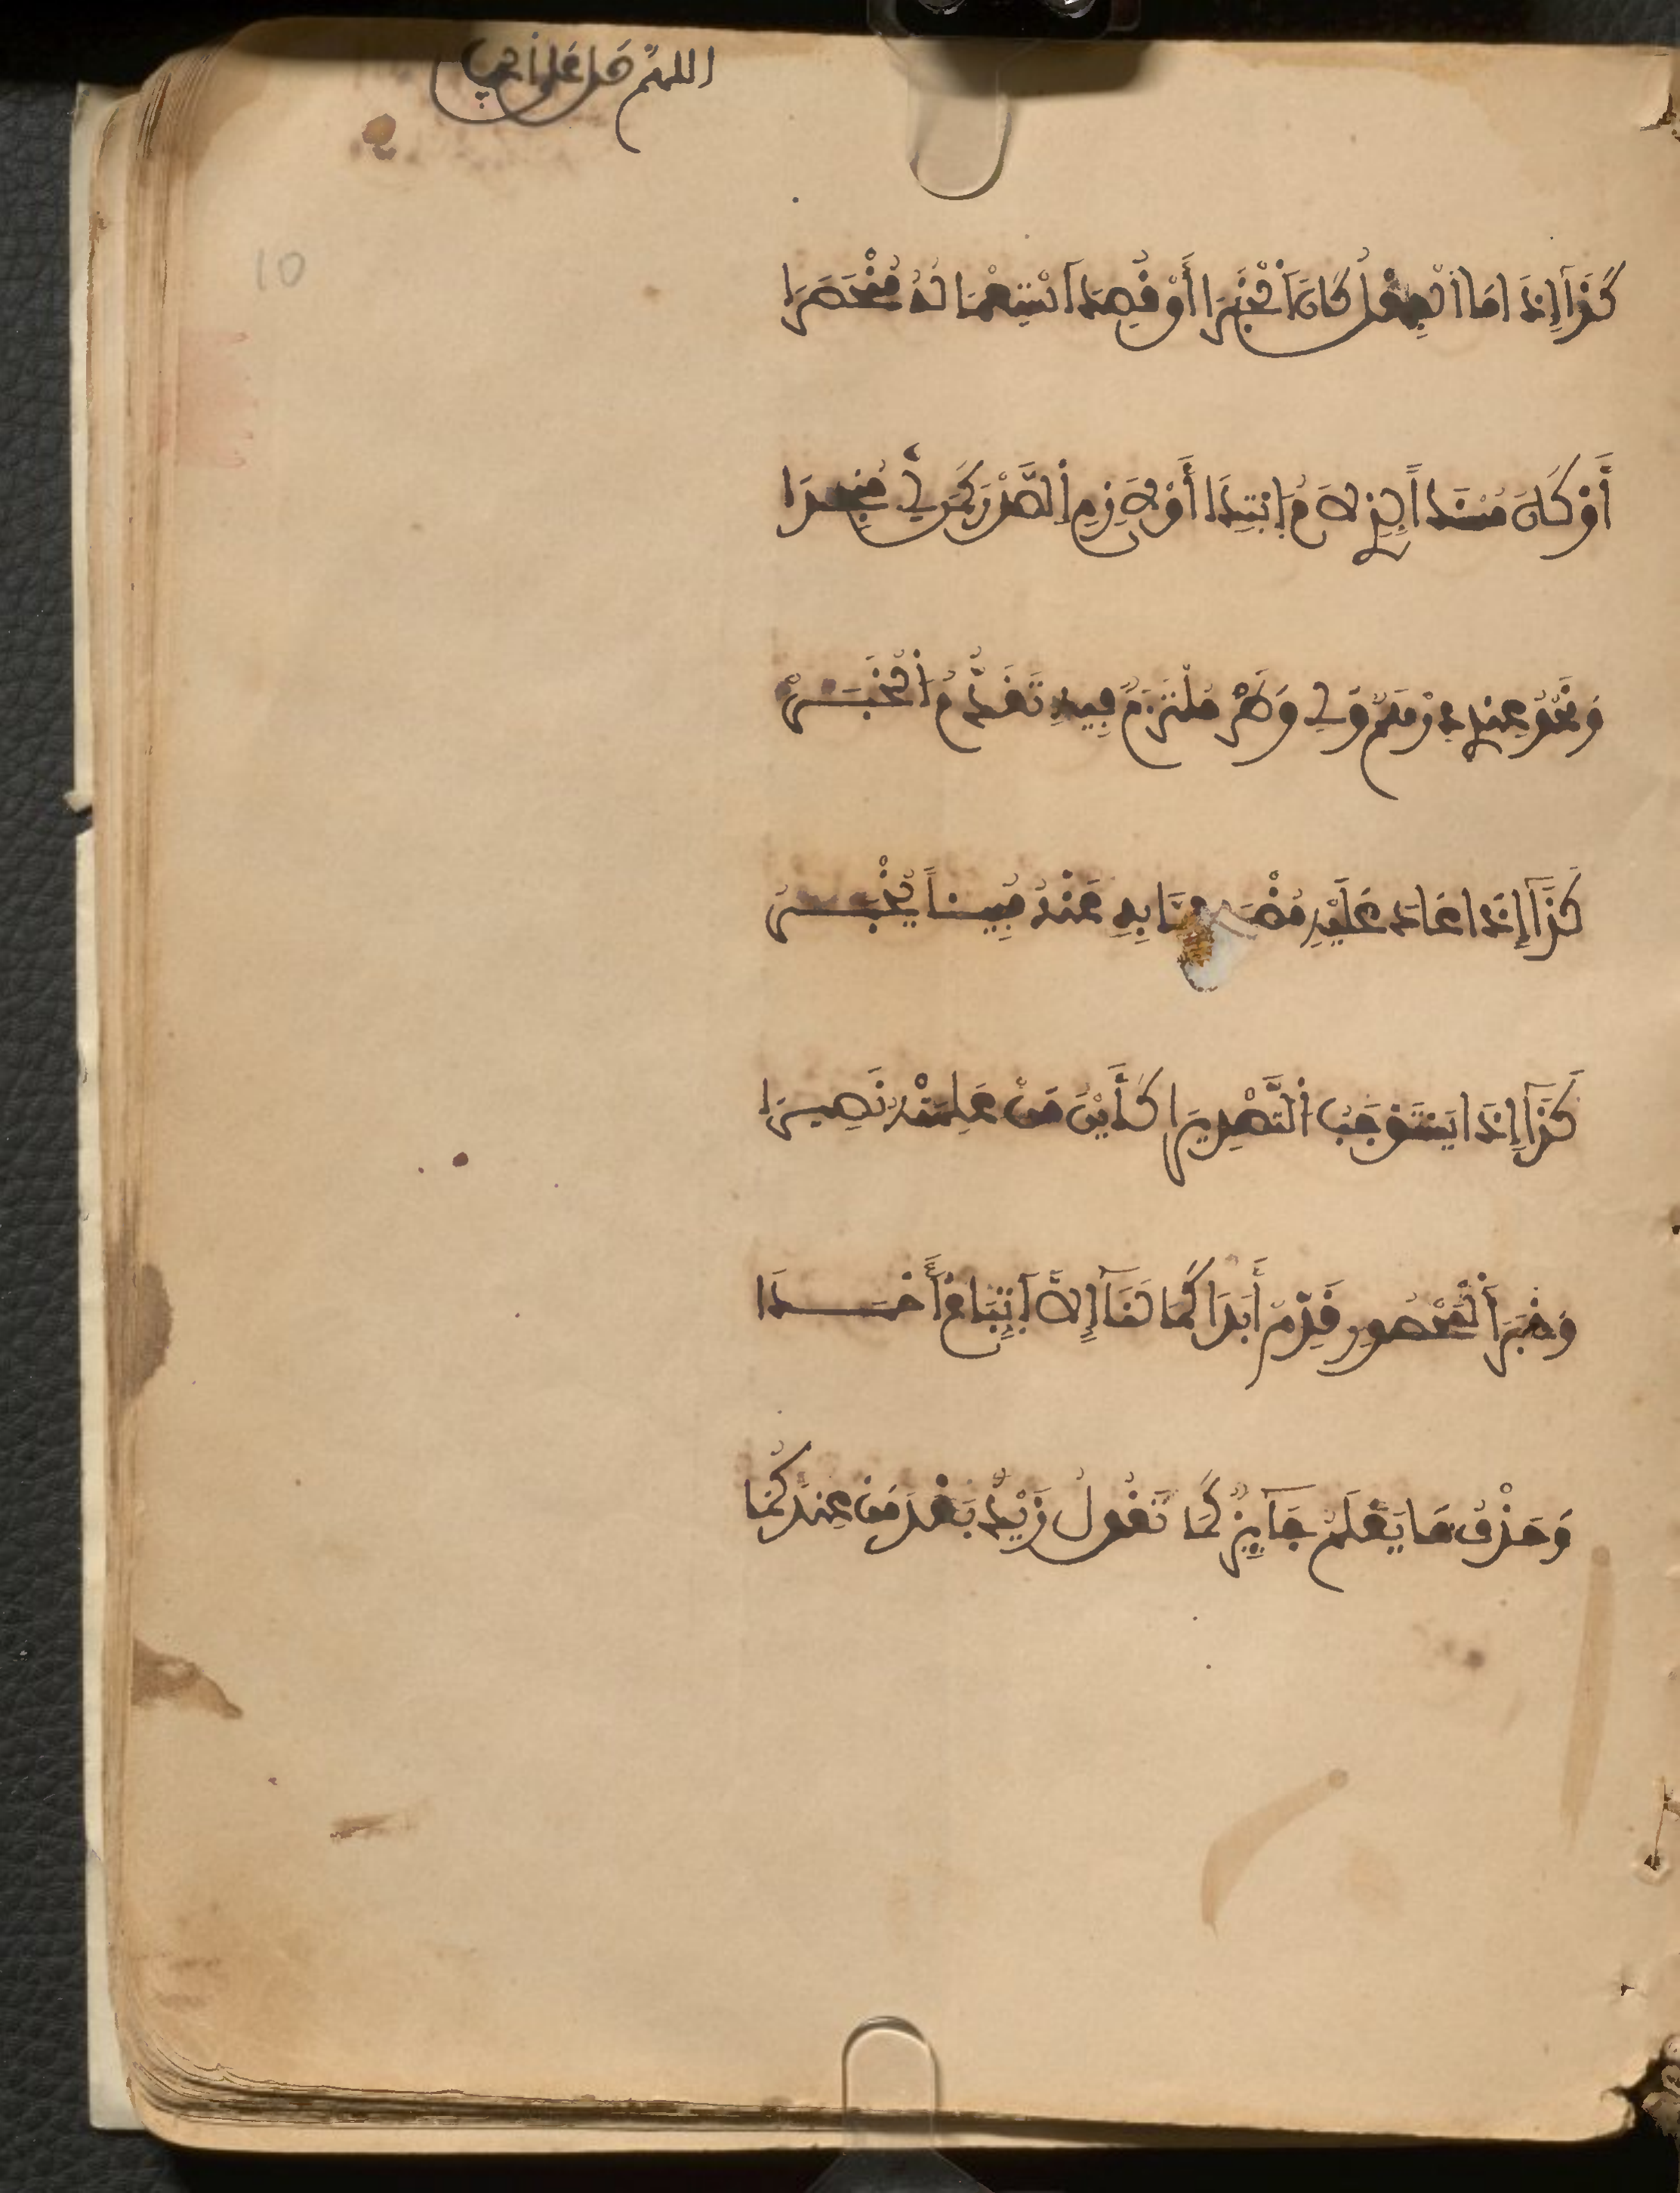 اللهم صل على
10
كَذَا إِذَا مَا الْفِعْلُ كَانَ الْخَبَرَا أَوْ قُصِدَ اسْتِعْمَالُهُ مُنْحَصِرَا
أَوْ كَانَ مُسْنَداً لِذِي لَامِ ابْتِدَا أَوْ لَازِمِ الصَّدْرِ كَمَن لِي مُنْجِدَا
وَنَحْوُ عِنْدِي دِرْهَمٌ وَلِي وَطَرْ مُلْتَزَمٌ فِيهِ تَقَدُّمُ الْخَبَرْ
كَذَا إِذَا عَادَ عَلَيْهِ مُضْمَرُ مِمَّا بِهِ عَنْهُ مُبِيناً يُخْبَرُ
كَذَا إِذَا يَسْتَوْجِبُ التَّصْدِيرَا كَأَيْنَ مَنْ عَلِمْتَهُ نَصِيرَا
وَخَبَرَ الْمَحْصُورِ قَدِّمْ أَبَدَا كَمَا لَنَا إِلَّا اتِّبَاعُ أَحْمَدَا
وَحَذْفُ مَا يُعْلَمُ جَائِزٌ كَمَا تَقُولُ زَيْدٌ بَعْدَ مَنْ عِنْدَكُمَا